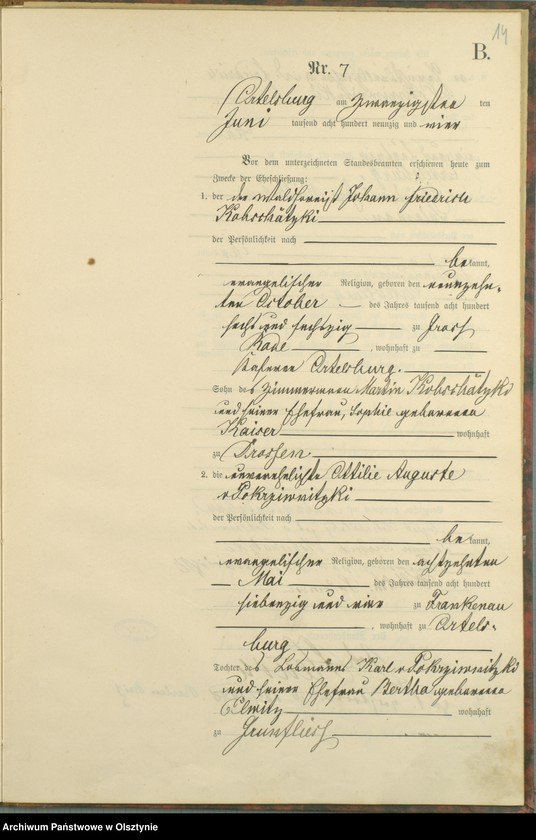 14
B.
Nr. 7
Ortelsburg am zwanzigsten ten
Juni tausend acht hundert neunzig und vier
Vor dem unterzeichneten Standesbeamten erschienen heute zum
Zwecke der Eheschließung:
1. der Johann Friedrich
Kobschätzki
der Persönlichkeit nach
be kannt,
evangelischer Religion, geboren den neunzehn-
ten October des Jahres tausend acht hundert
sechs und sechszig zu Gross
, wohnhaft zu
Ortelsburg.
Sohn des Zimmermann Martin Kobschätzki
und seiner Ehefrau, Sophie geborenen
Kaiser wohnhaft
zu Drossen
2. die unverehelichte Ottilie Auguste
v Pokrziwnitzki
der Persönlichkeit nach
be kannt,
evangelischer Religion, geboren den achtzehnten
Mai des Jahres tausend acht hundert
siebenzig und vier zu Frankenau
, wohnhaft zu Ortels-
burg
Tochter des Losmanns Karl v Pokrziwnitzki
und seiner Ehefrau Bertha geborenen
wohnhaft
zu Grünfliess
Archiwum Państwowe w Olsztynie